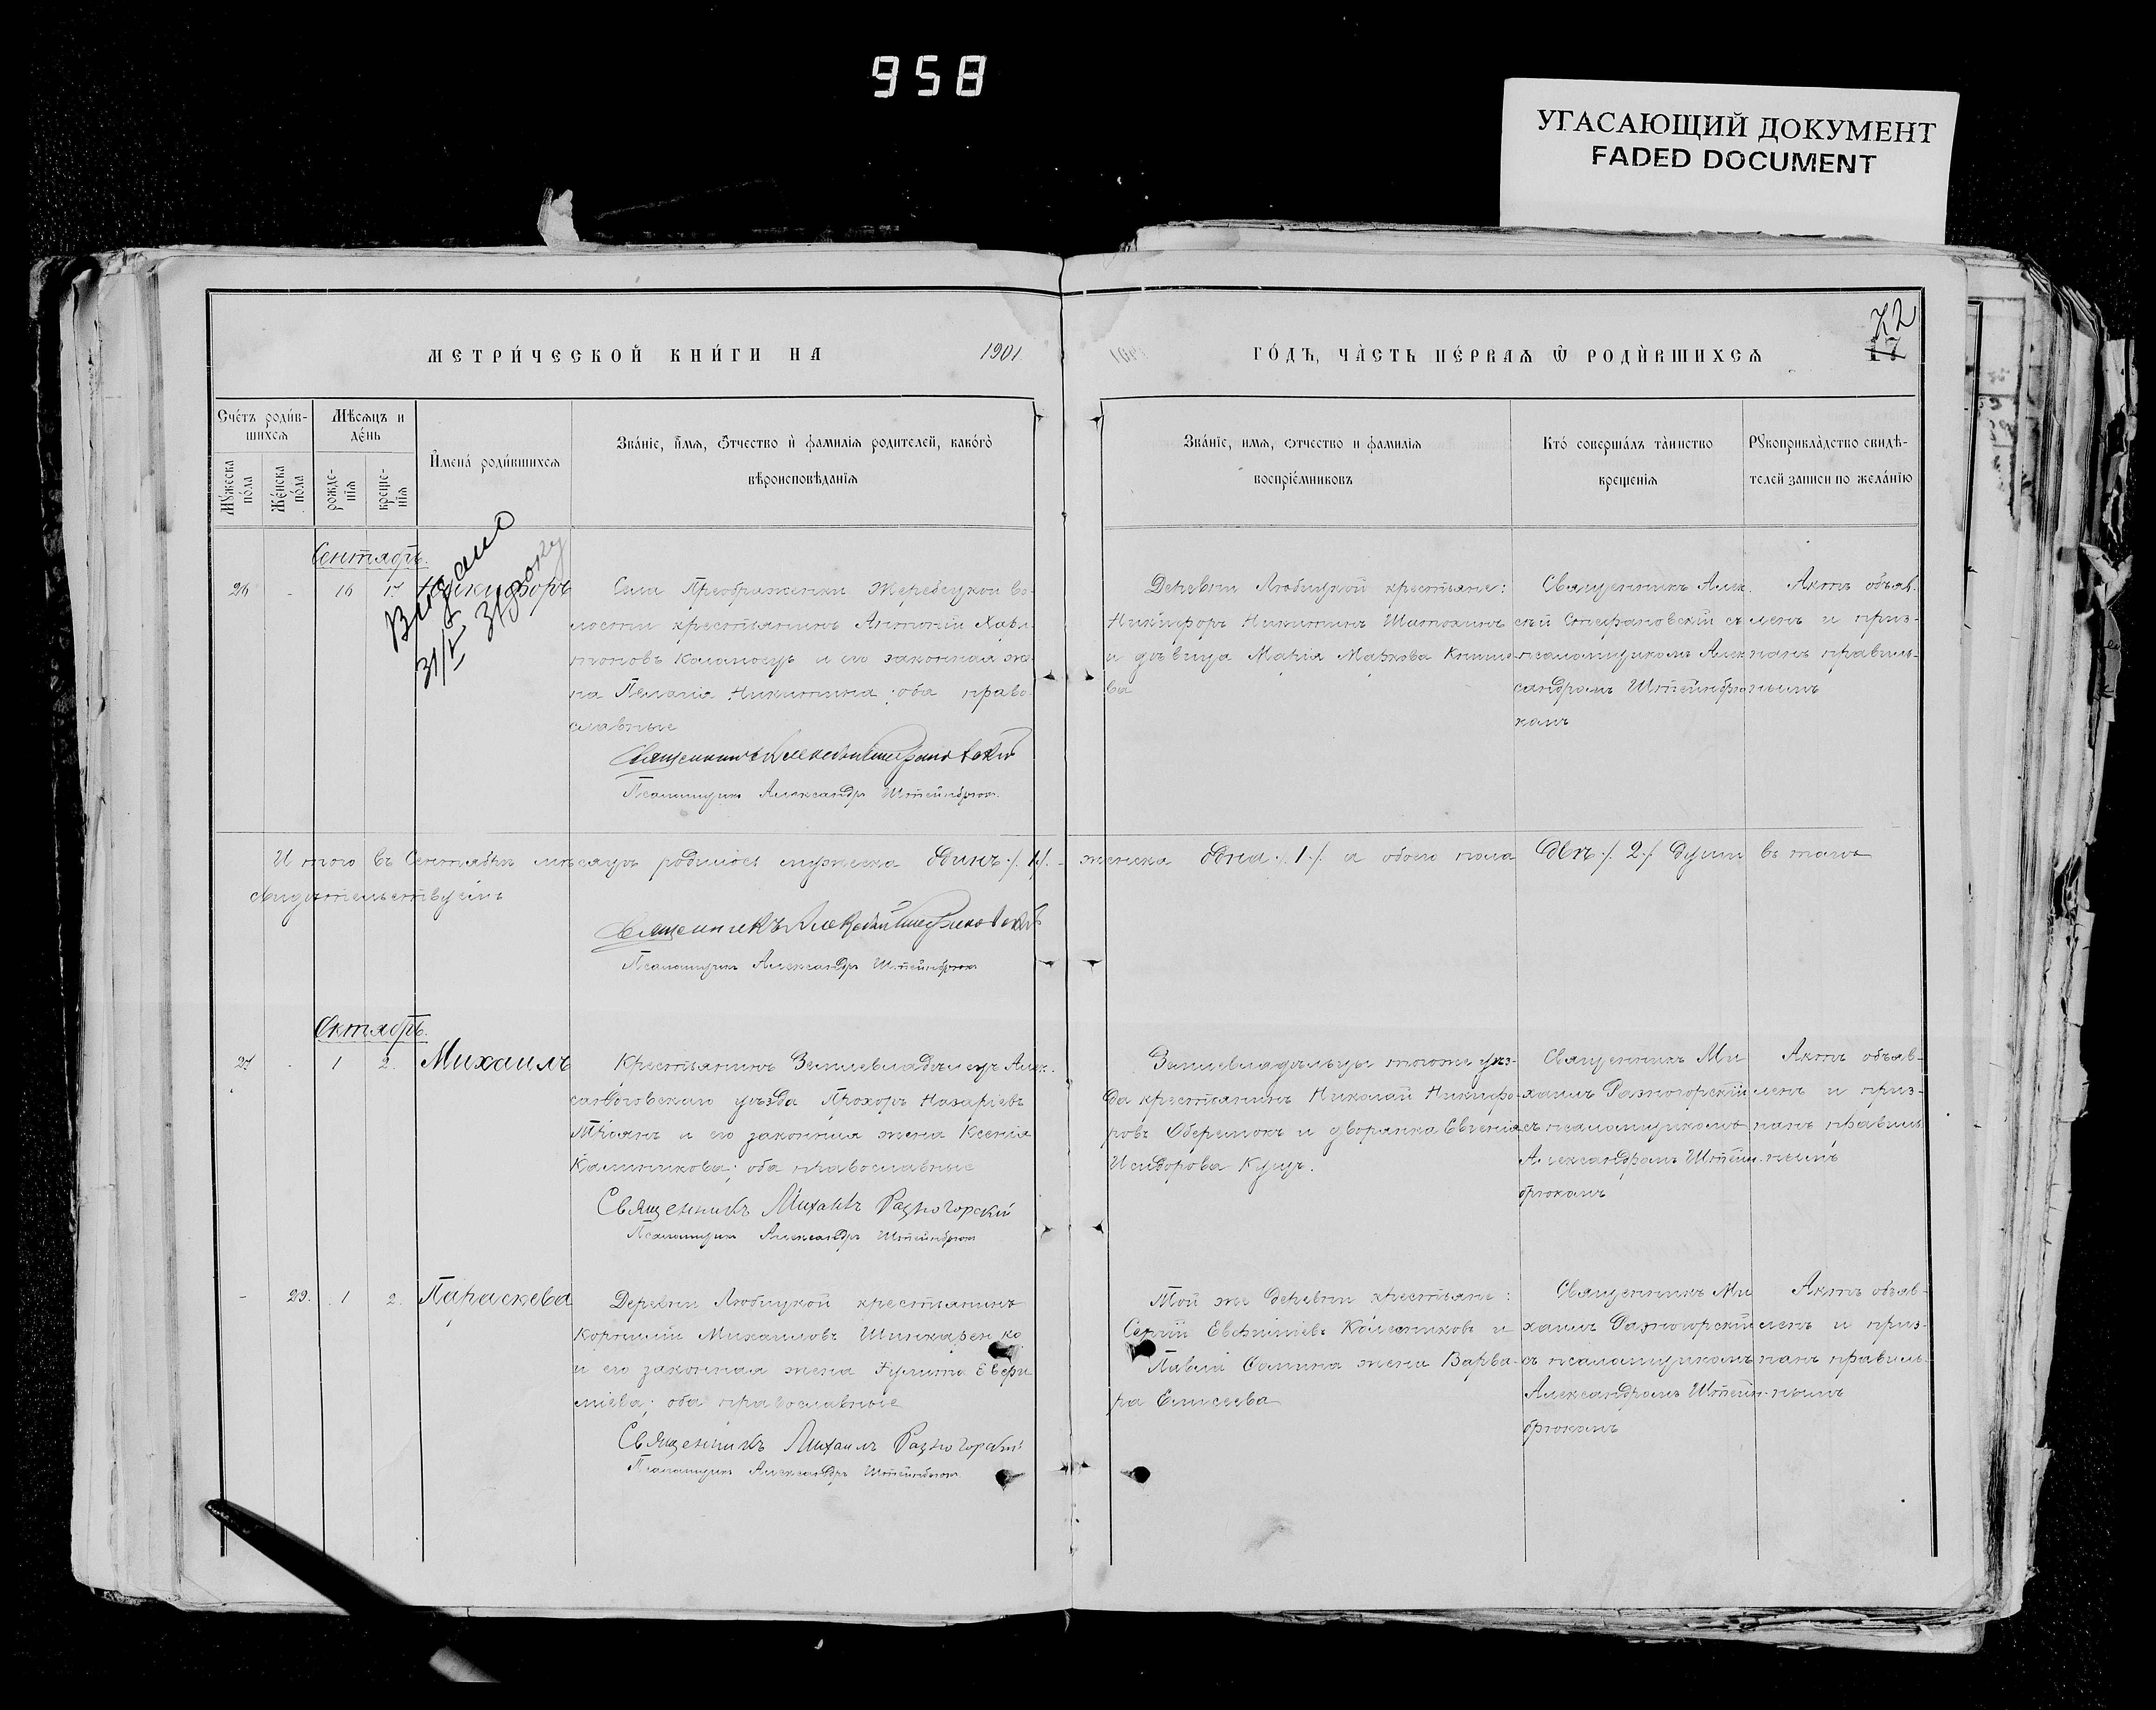 958
УГАСАЮЩИЙ ДОКУМЕНТ
FADED DOCUMENT
72
17
МЕТРИ́ЧЕСКОЙ КНИ́ГИ НА 1901
ГО́ДЪ, ЧА́СТЬ ПЕ́РВАѦ Ѿ РОДИ́ВШИХСѦ
Сче́тъ роди́в-
шихсѧ
Мѣсѧцъ и
де́нь
Мꙋ́жеска
по́ла
Же́нска
по́ла
рожде-
нїѧ
креще-
нїѧ
И҆мена̀ роди́вшихсѧ
Зва́нїе, и҆́мѧ, ѻ҆́тчество и҆ фамилїѧ родителей, како́гѡ
вѣроисповѣ́данїѧ
Зва́нїе, имѧ, ѻтчество и фамилїѧ
воспрїе́мниковъ
Кто̀ соверша́лъ та́инство
креще́нїѧ
Рꙋкоприкла́дство свидѣ́-
телей записи по жела́нїю
Сентябрь.
Видано
31/V
26 - 16 17 Никифоръ
Села Преображенки Жеребецкой во-
лости крестьянинъ Антоній Хари-
тоновъ и его законная же-
на Пелагія Никитина; оба право-
славные
Священникъ Алексѣй Стефановскій
Псаломщикъ Александръ Штейнбрюкъ
Деревни Любицкой крестьяне:
Никифоръ Никитинъ
и дѣвица Марія Маркова
ва
Священникъ Алек-
сѣй Стефановскій съ
псаломщикомъ Алек-
сандромъ Штейнбрю-
комъ
Актъ объяв-
ленъ и приз-
нанъ правиль-
нымъ
И того въ Сентябрѣ мѣсяцѣ родилось мужеска одинъ ./. 1 ./. - женска одна ./. 1 ./. а обоего пола двѣ ./. 2 ./. души въ томъ
свидѣтельствуемъ
Священникъ Алексѣй Стефановскій
Псаломщикъ Александръ Штейнбрюкъ
Октябрь.
27 - 1 2. Михаилъ
Крестьянинъ Землевладѣлецъ Алек-
сандровскаго уѣзда Прохоръ Назаріевъ
Троянъ и его законная жена Ксенія
Калиникова; оба православные
Священникъ Михаилъ Разногорскій
Псаломщикъ Александръ Штейнбрюкъ
Землевладѣльцы тогоже уѣз-
да крестьянинъ Николай Никифо-
ровъ Оберемокъ и дворянка Евгенія
Исидорова Куцъ.
Священникъ Ми-
хаилъ Разногорскій
съ псаломщикомъ
Александромъ Штейн-
брюкомъ
Актъ объяв-
ленъ и приз-
нанъ правиль-
нымъ
- 29. 1 2. Параскева
Деревни Любицкой крестьянинъ
Корнилій Михаиловъ Шинкаренко
и его законная жена Іулита Евфи-
міева; оба православные
Священникъ Михаилъ Разногорскій
Псаломщикъ Александръ Штейнбрюкъ
Той же деревни крестьяне:
Сергій Евфиміевъ Колесниковъ и
Павла жена Варва-
ра Елисеева
Священникъ Ми-
хаилъ Разногорскій
съ псаломщикомъ
Александромъ Штейн-
брюкомъ
Актъ объяв-
ленъ и приз-
нанъ правиль-
нымъ